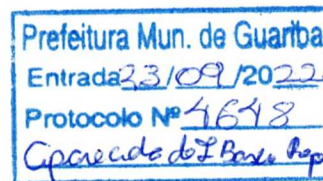 Prefeitura Mun. de Guariba
Entrada 23/09/2022
Protocolo Nº 4648
Aparecida do